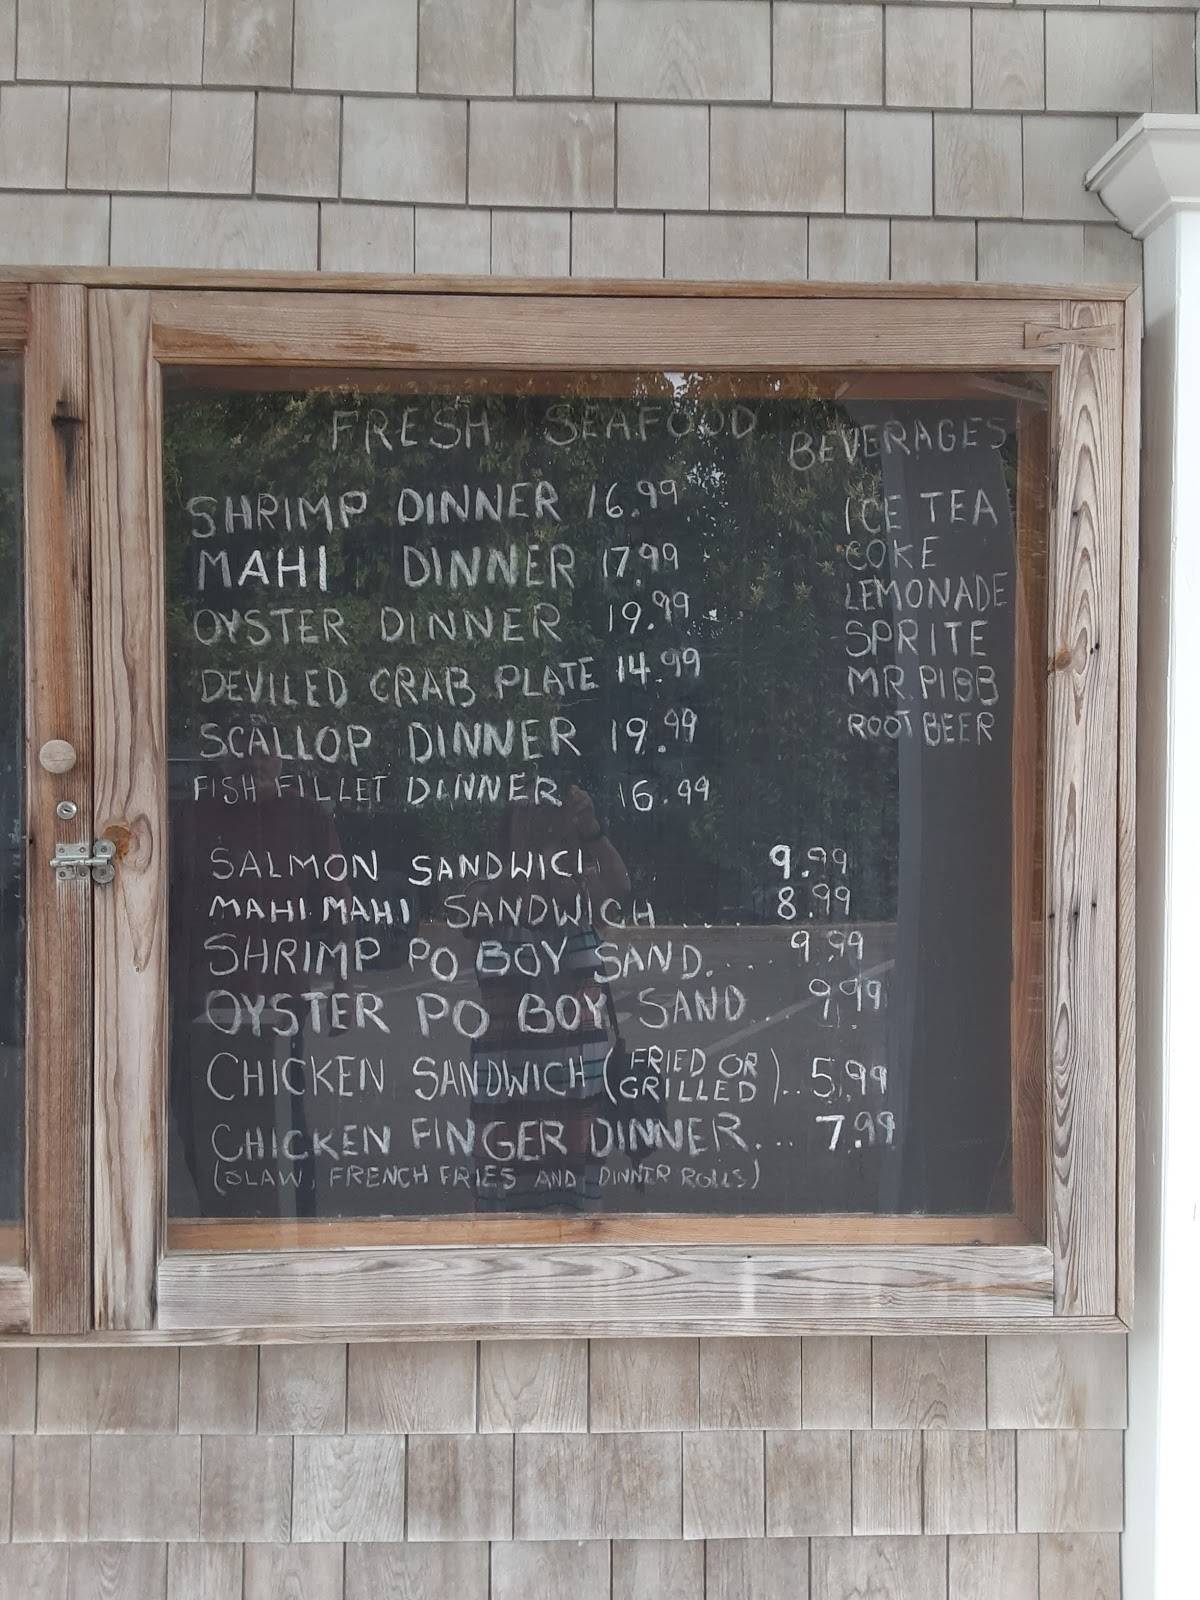 FRESH SEAFOOD
SHRIMP DINNER 16.99
MAHI DINNER 17.99
OYSTER DINNER 19.99
DEVILED CRAB PLATE 14.99
SCALLOP DINNER 19.99
FISH FILLET DINNER 16.99
SALMON SANDWICH 9.99
MAHI MAHI SANDWICH .... 8.99
SHRIMP PO BOY SAND.... 9.99
OYSTER PO BOY SAND... 9.99
CHICKEN SANDWICH (FRIED OR GRILLED)... 5.99
CHICKEN FINGER DINNER... 7.99
(SLAW, FRENCH FRIES AND DINNER ROLLS)
BEVERAGES
ICE TEA
COKE
LEMONADE
SPRITE
MR. PIBB
ROOT BEER